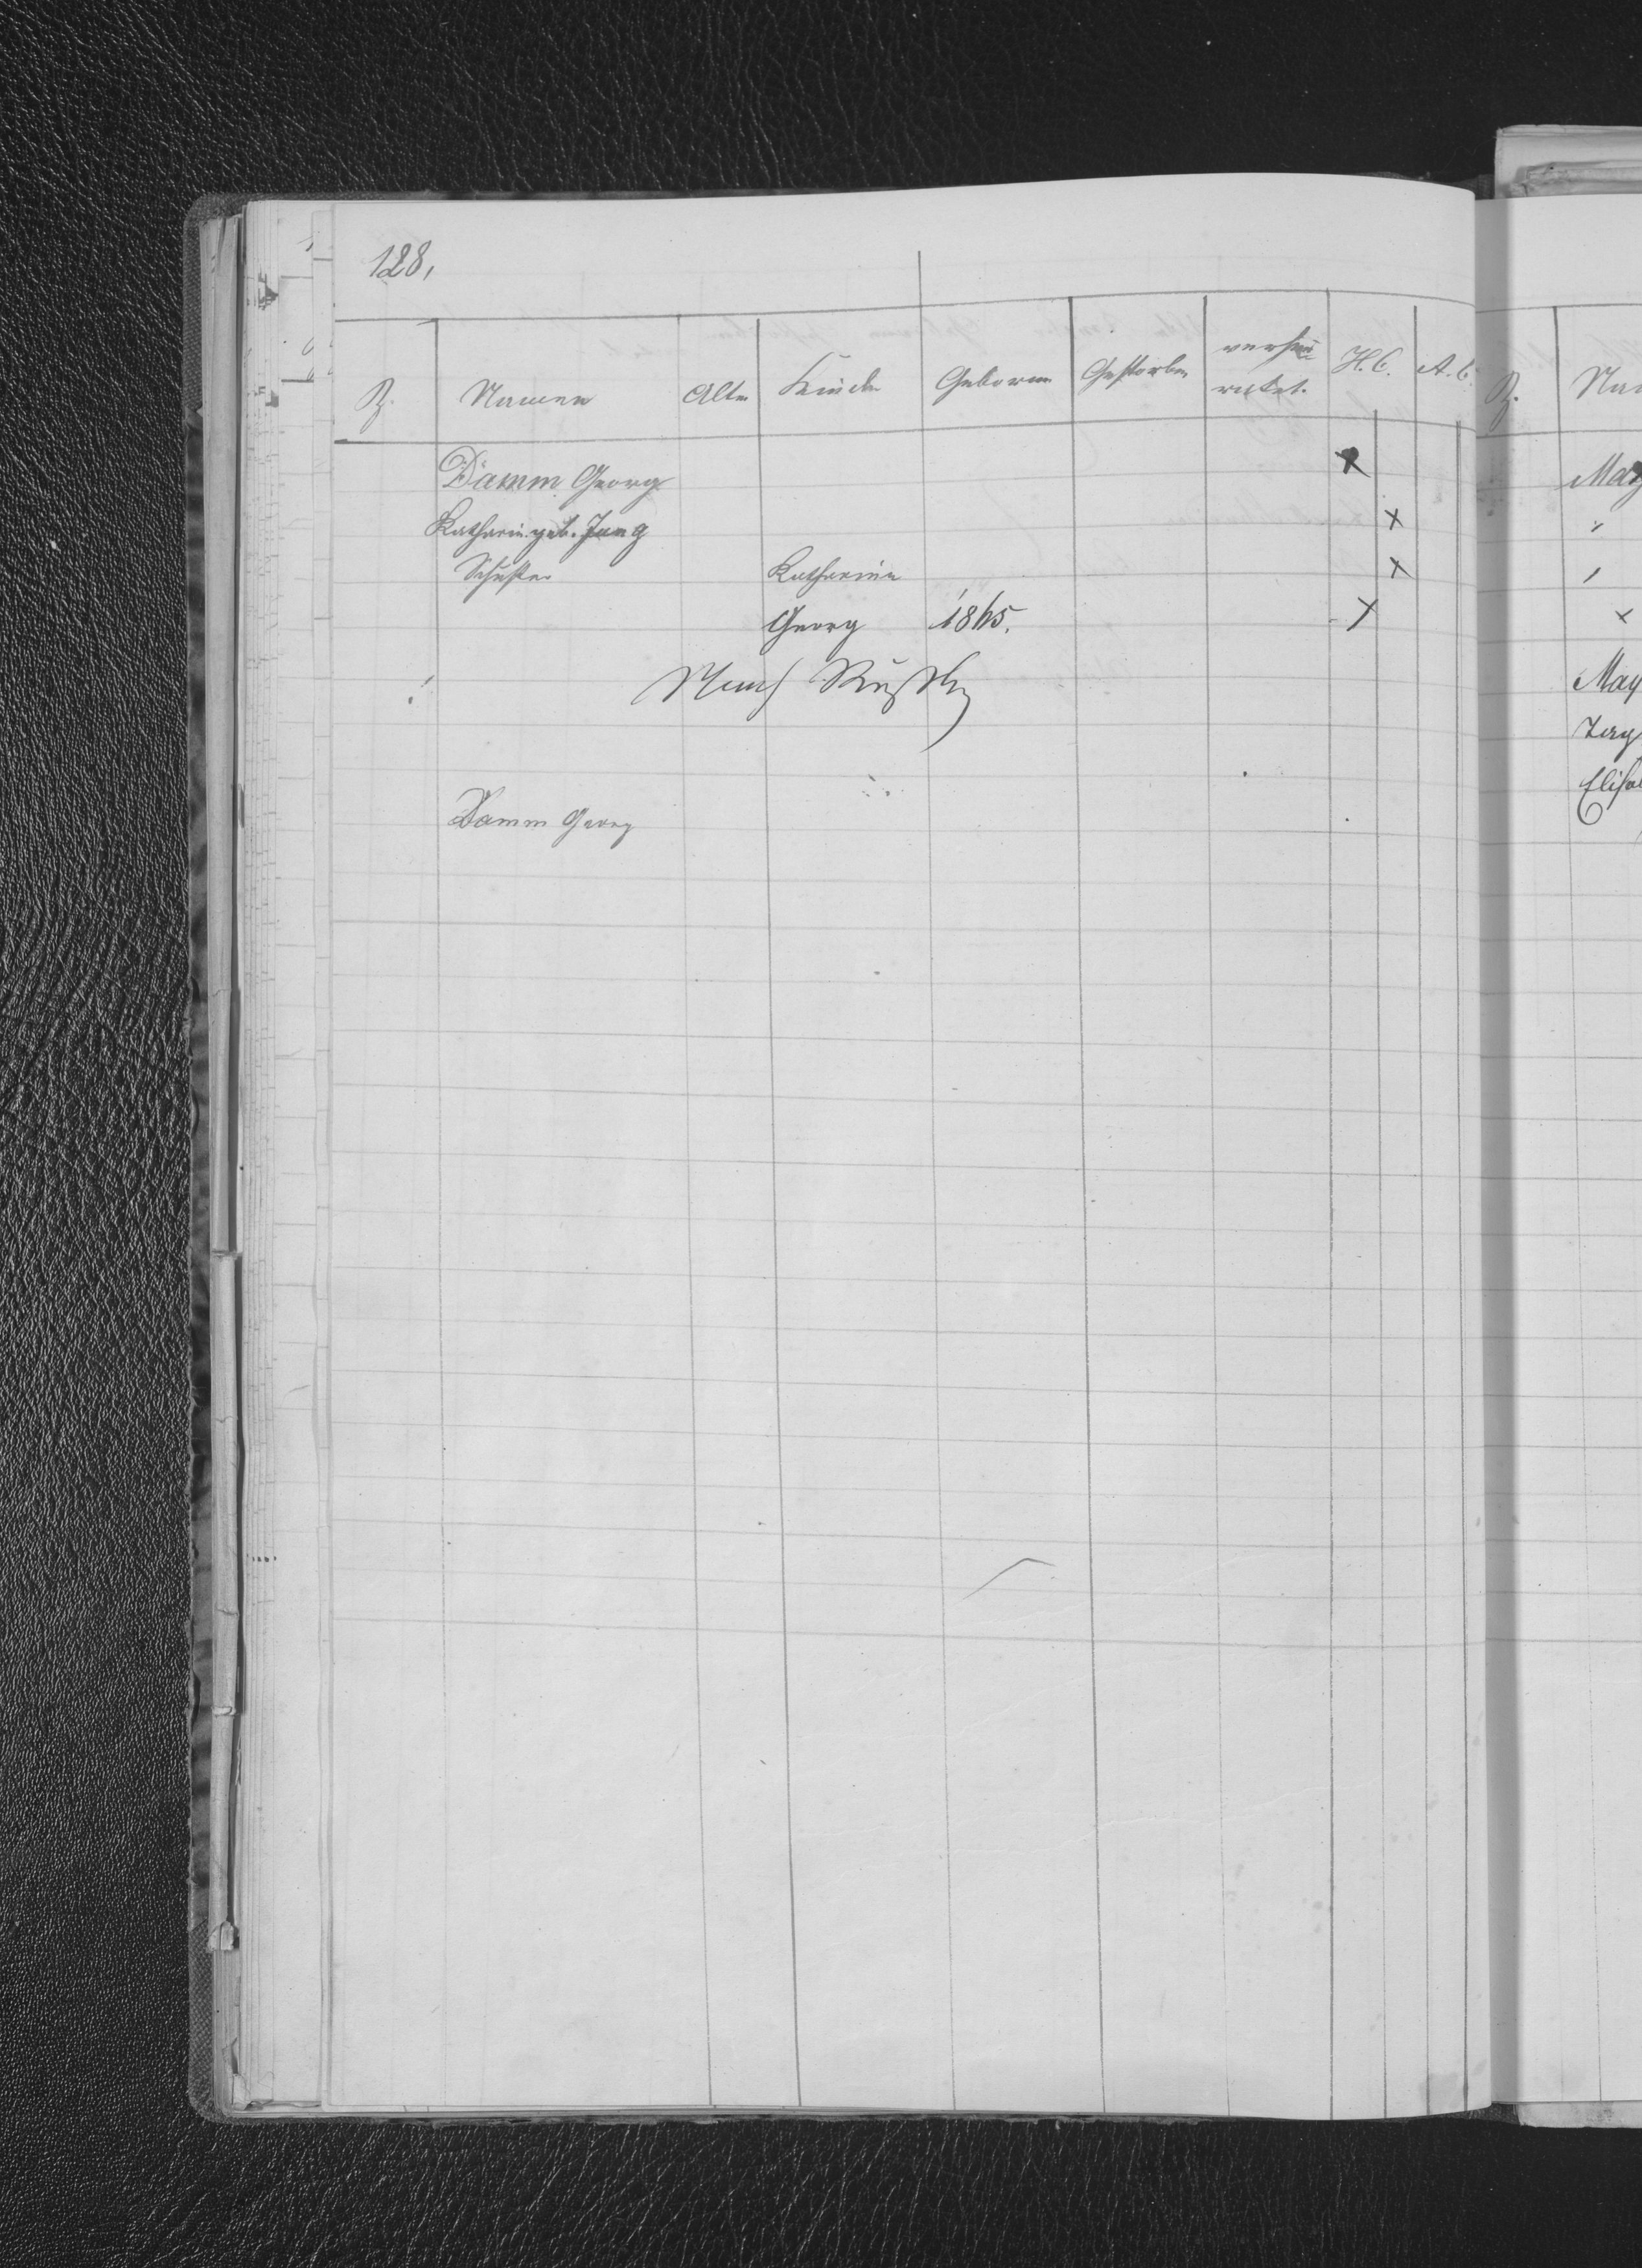 128.
Z. Namen Alter Kinder Geboren Gestorben verhei-
ratet. H. C. A. C.
Damm Georg
Katharin. geb. Jung
Schuster Katharina
Georg 1865.
Nach Rußld
Damm Georg
Z. Na
May
Elisa